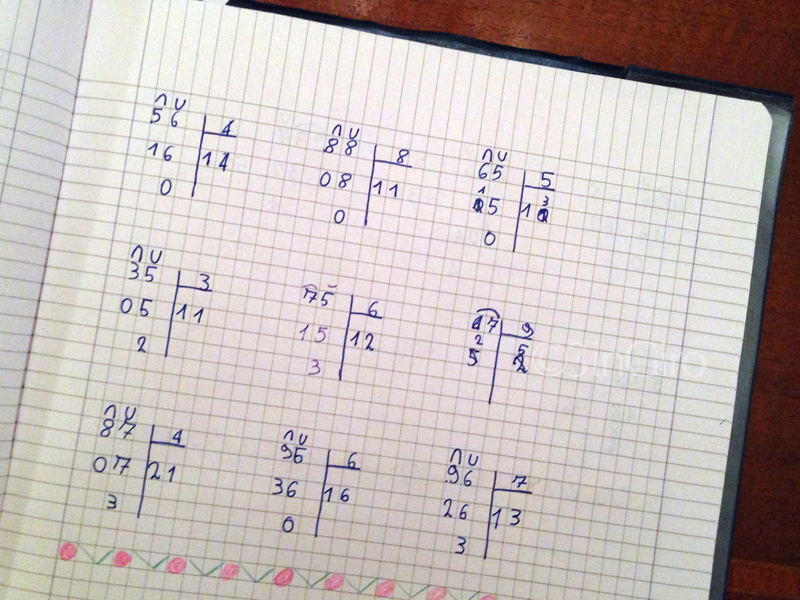 56 4
16 14
0
88 8
08 11
0
65 5
1
5 1
3
0
35 3
05 11
2
75 6
15 12
3
47 9
2 5
87 4
07 21
3
96 6
36 16
0
96 7
26 13
3